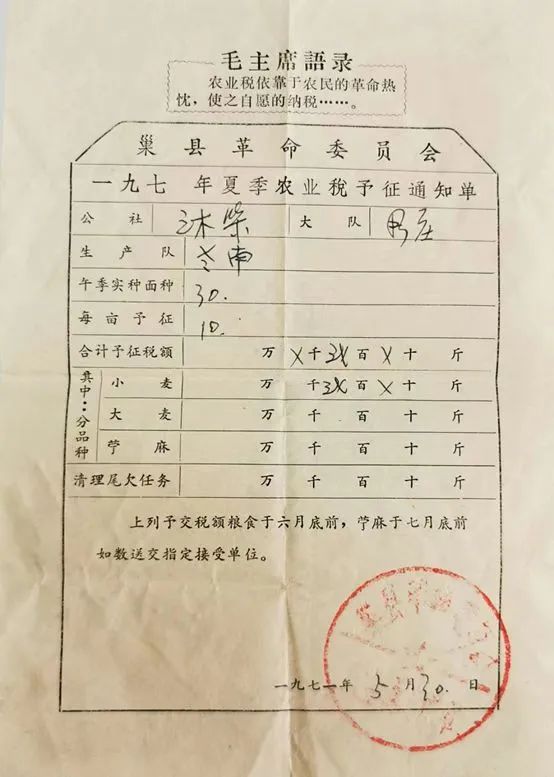 毛主席語录
农业税依靠于农民的革命热
忱，使之自愿的纳税……。
巢县革命委员会
一九七 年夏季农业税予征通知单
公社 沐柴 大队
生产队 南
午季实种面种 30.
每亩予征 10.
合计予征税额 万 X千3X百X十 斤
其中：分品种
小麦 千3X百X十 斤
大麦 万 千 百 十 斤
苧麻 万 千 百 十 斤
清理尾欠任务 万 千 百 十 斤
上列予交税额粮食于六月底前，苧麻于七月底前
如数送交指定接受单位。
一九七一年 5月30.日
巢县革